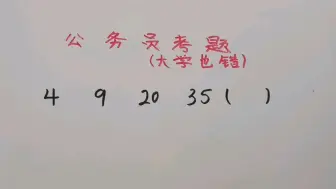 公务员考题
(大学也错)
4 9 20 35 ( )